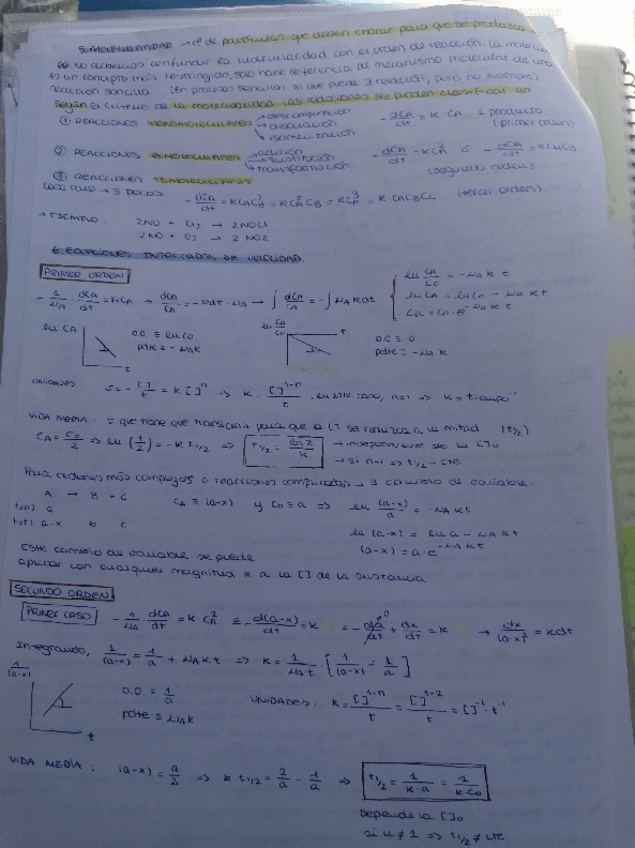 5. MOLECULARIDAD → nº de partículas que deben chocar para que se produzca
No debemos confundir la molecularidad con el orden de reacción. La
es un concepto más restringido, solo hace referencia al mecanismo molecular de una
reacción sencilla (En procesos sencillos si que puede relación, pero no siempre)
Según el criterio de la molecularidad las reacciones se pueden clasificar en
① REACCIONES MONOMOLECULARES → descomposición → disociación → isomerización - dCA/dt = K CA 1 producto (primer orden)
② REACCIONES BIMOLECULARES → adición → sustitución → transformación - dCA/dt = K CA² ó - dCA/dt = K CA CB (segundo orden)
③ REACCIONES
- dCA/dt = K CA CB² = K CA² CB = K CA³ = K CA CB CC (tercer orden)
→ EJEMPLO: 2NO + Cl2 → 2NOCl
2NO + O2 → 2NO2
6. ECUACIONES INTEGRADAS DE VELOCIDAD.
PRIMER ORDEN
- 1/νA · dCA/dt = K CA → dCA/CA = - K dt · νA → ∫ dCA/CA = - ∫ νA K dt
ln CA/C0 = - νA K t
ln CA = ln C0 - νA K t
CA = C0 · e^-νA K t
ln CA t O.O. ≡ ln C0 pdte = - νA K
ln CA/C0 t O.O ≡ 0 pdte = - νA K
UNIDADES: v = - []/t = K · []^n ⇒ K = []^1-n/t , en este caso, n=1 ⇒ K = tiempo⁻¹
VIDA MEDIA: t que tiene que transcurrir para que la [] se reduzca a la mitad (t1/2)
CA = C0/2 ⇒ ln (1/2) = - K t1/2 ⇒ t1/2 = ln 2/K → independiente de la []0
→ si n=1 ⇒ t1/2 = cte
Para órdenes más complejos o reacciones complicadas → cambio de variable:
A → B + C CA ≡ (a-x) y C0 ≡ a ⇒ ln (a-x)/a = - νA K t
t=0) a
t=t) a-x b c ln (a-x) = ln a - νA K t
(a-x) = a · e^-νA K t
Este cambio de variable se puede
aplicar con cualquier magnitud α a la [] de la sustancia
SEGUNDO ORDEN
PRIMER CASO - 1/νA · dCA/dt = K CA² ≡ - d(a-x)/dt = K = - da/dt + dx/dt = K → dx/(a-x)² = K dt
Integrando, 1/(a-x) = 1/a + νA K t ⇒ K = 1/νA t · [1/(a-x) - 1/a]
1/(a-x) t O.O. = 1/a pdte ≡ νA K
UNIDADES: K = []^1-n/t = []^1-2/t = []⁻¹ · t⁻¹
VIDA MEDIA: (a-x) = a/2 ⇒ K t1/2 = 2/a - 1/a ⇒ t1/2 = 1/K·a = 1/K·C0
Depende la []0
si n≠1 ⇒ t1/2 ≠ cte